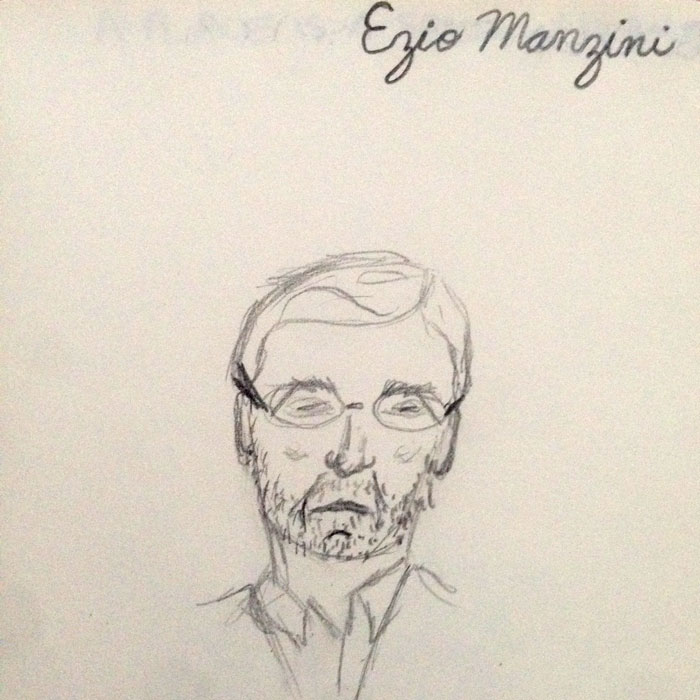 Ezio Manzini